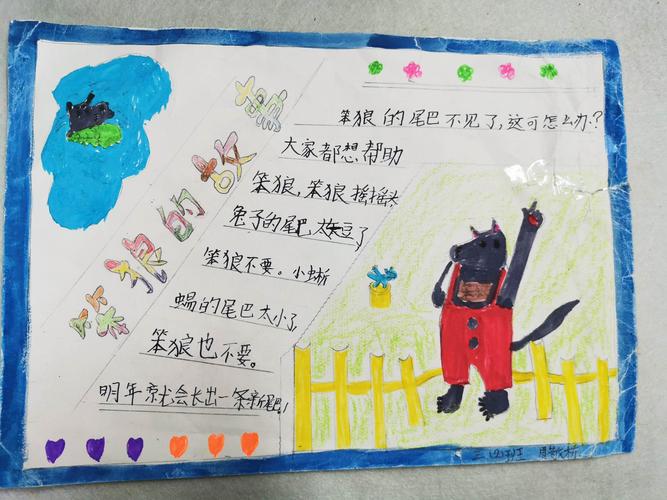 笨狼的故事
笨狼的尾巴不见了,这可怎么办?
大家都想帮助
笨狼,笨狼摇摇头
兔子的尾巴太短了
笨狼不要。小蜥
蜴的尾巴太小了,
笨狼也不要。
明年就会长出一条新尾巴!